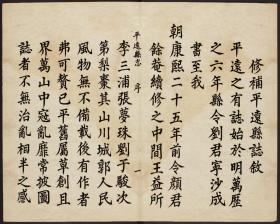 修補平遠縣誌敘
平遠之有誌始於明萬曆
之六年縣令劉君寧沙成
書至我
朝康熙二十五年前令顏君
餘菴續修之中間王益所
平遠縣志 序 一
李三浦張夢珠劉于駿次
第棃棗其山川城郭人民
風物無不備載後有作者
弗可贅已平舊屬草創且
界萬山中寇亂靡常披圖
誌者不無治亂相半之感